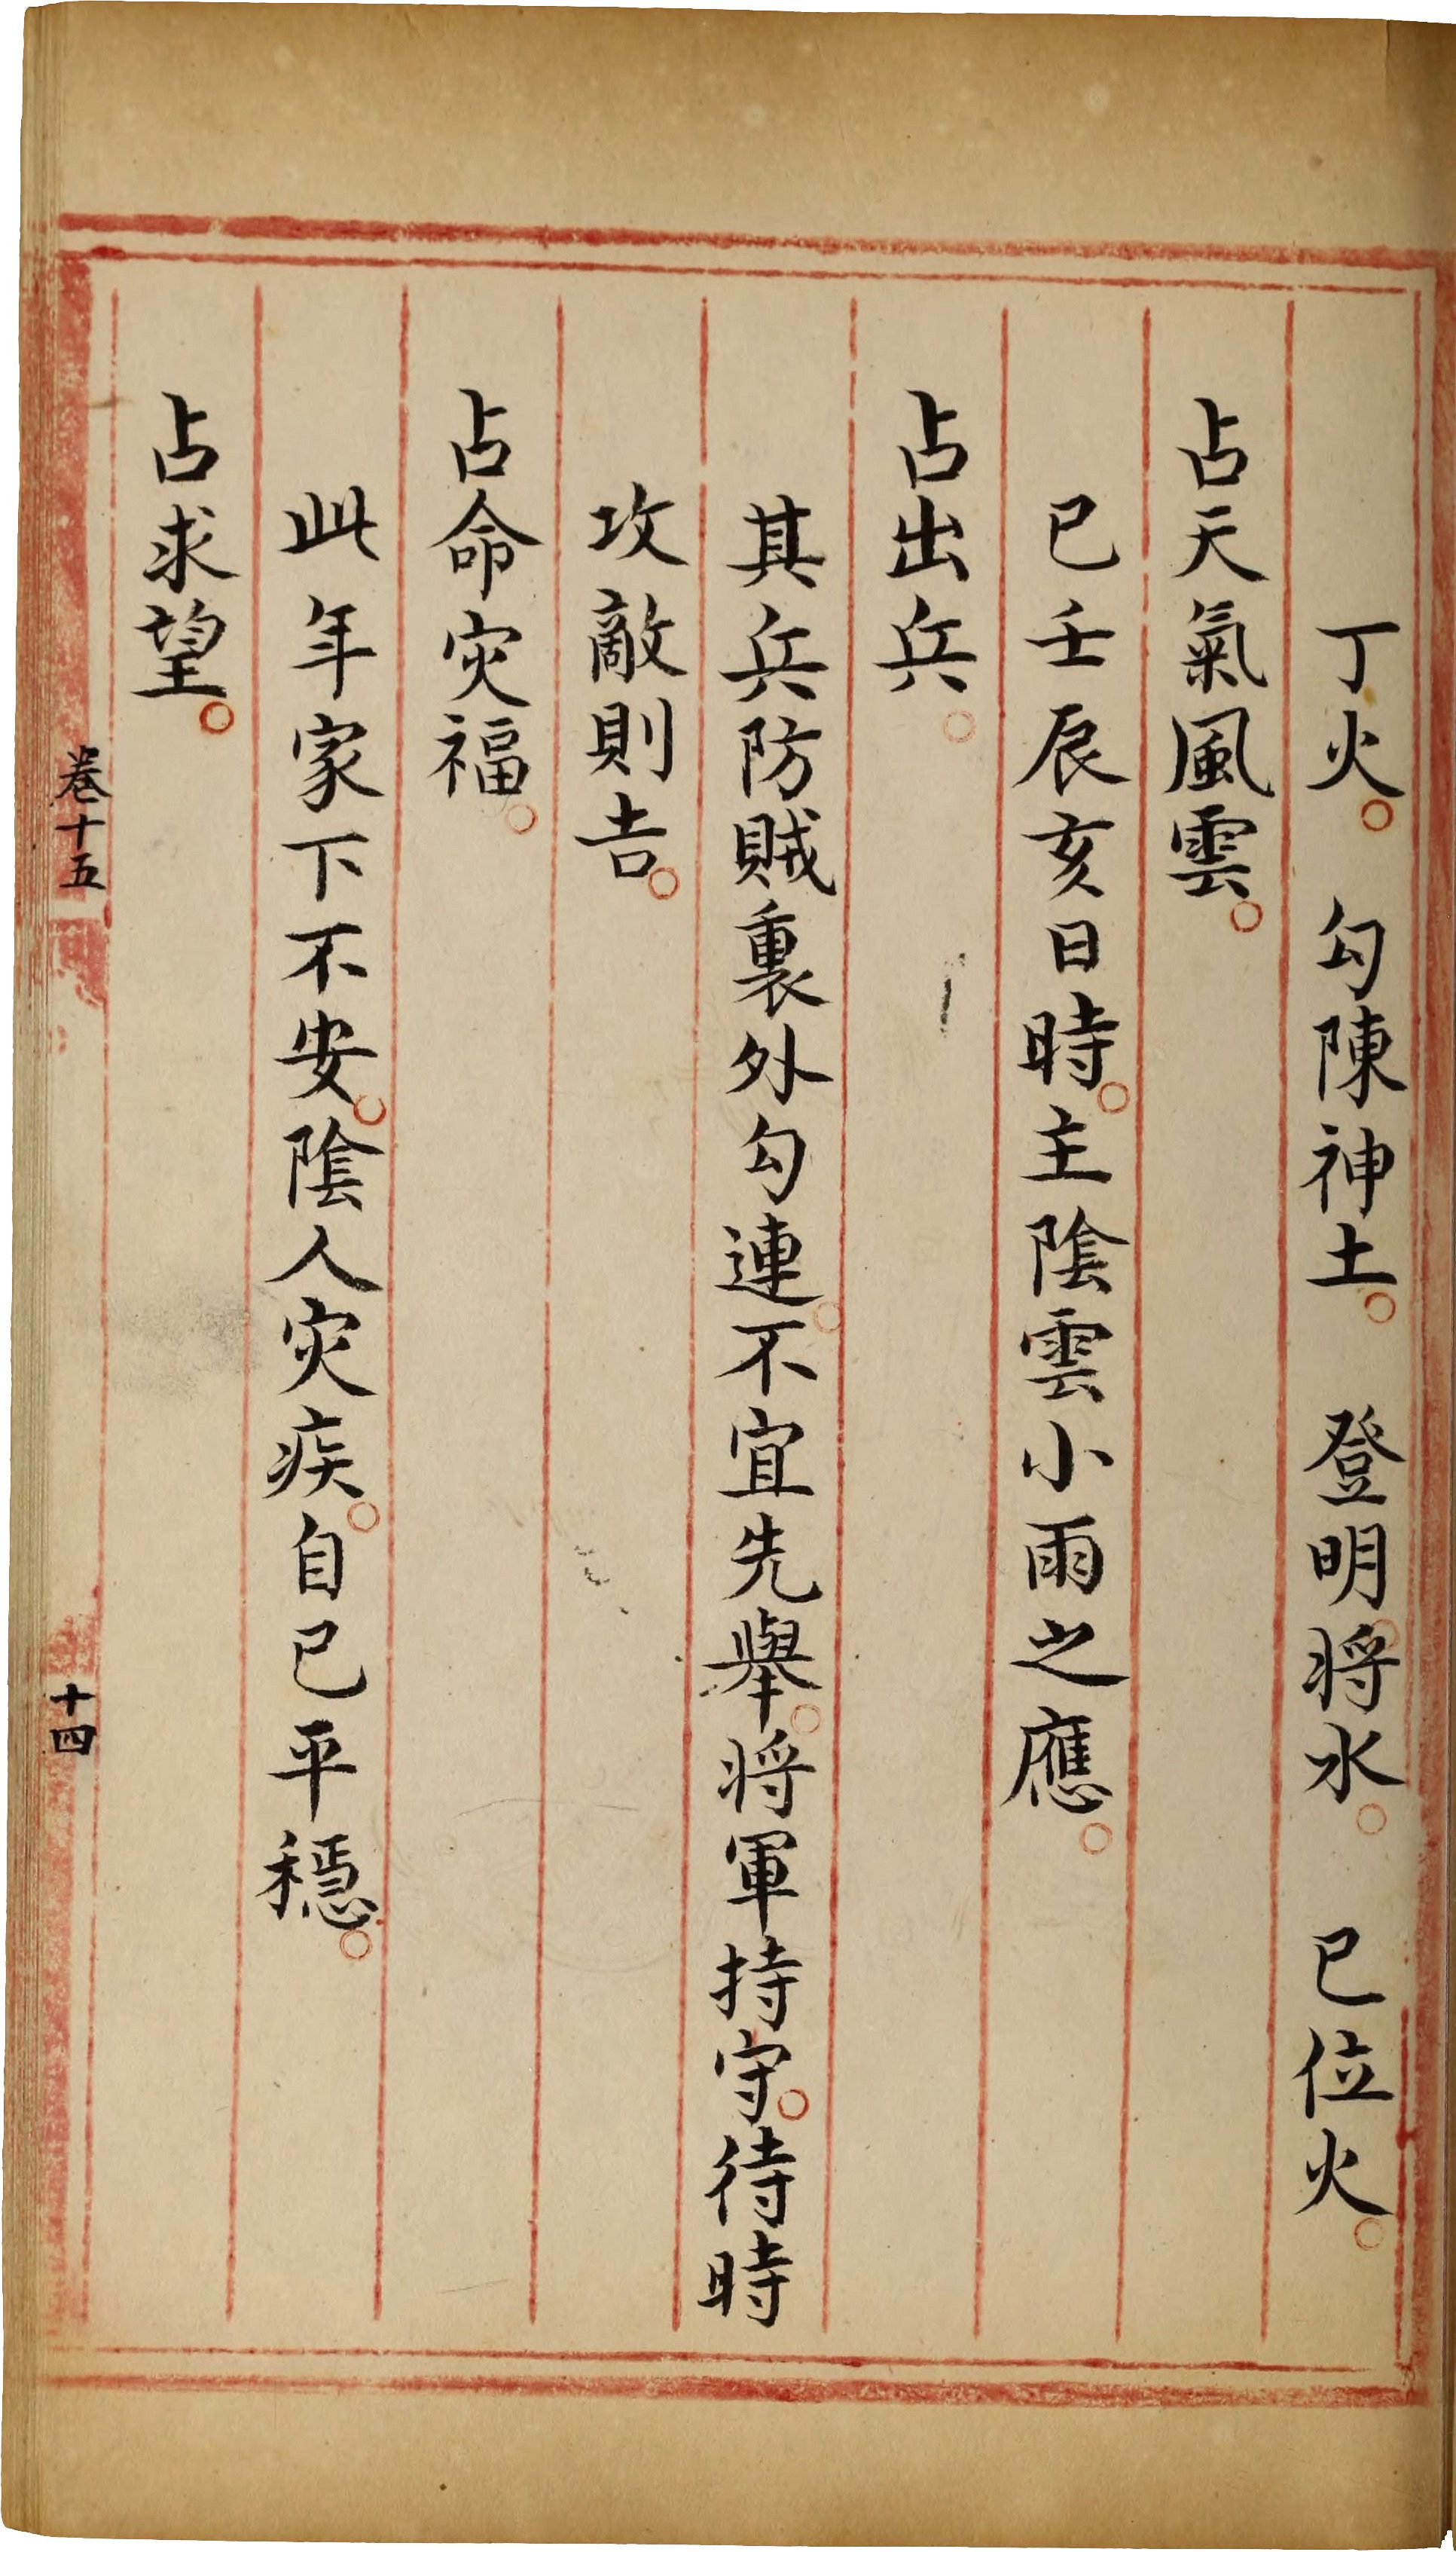 丁火。　勾陳神土。　登明將水。　巳位火。
占天氣風雲。
己壬辰亥日時。主陰雲小雨之應。
占出兵。
其兵防賊裏外勾連。不宜先舉。將軍持守。待時
攻敵則吉。
占命灾福。
此年家下不安。陰人灾疾。自己平穩。
占求望。
卷十五
十四